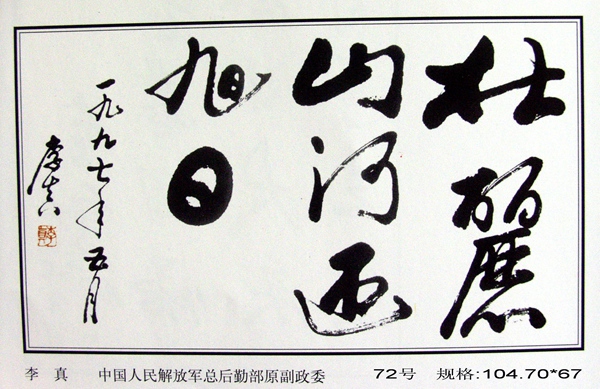 壮麗
山河迎
旭日
一九九七年五月
李真
李 真 中国人民解放军总后勤部原副政委 72号 规格:104.70*67